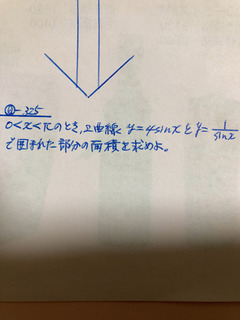 ⑬-325
0<x<πのとき、2曲線 y=4sinx と y=1/sinx
で囲まれた部分の面積を求めよ。